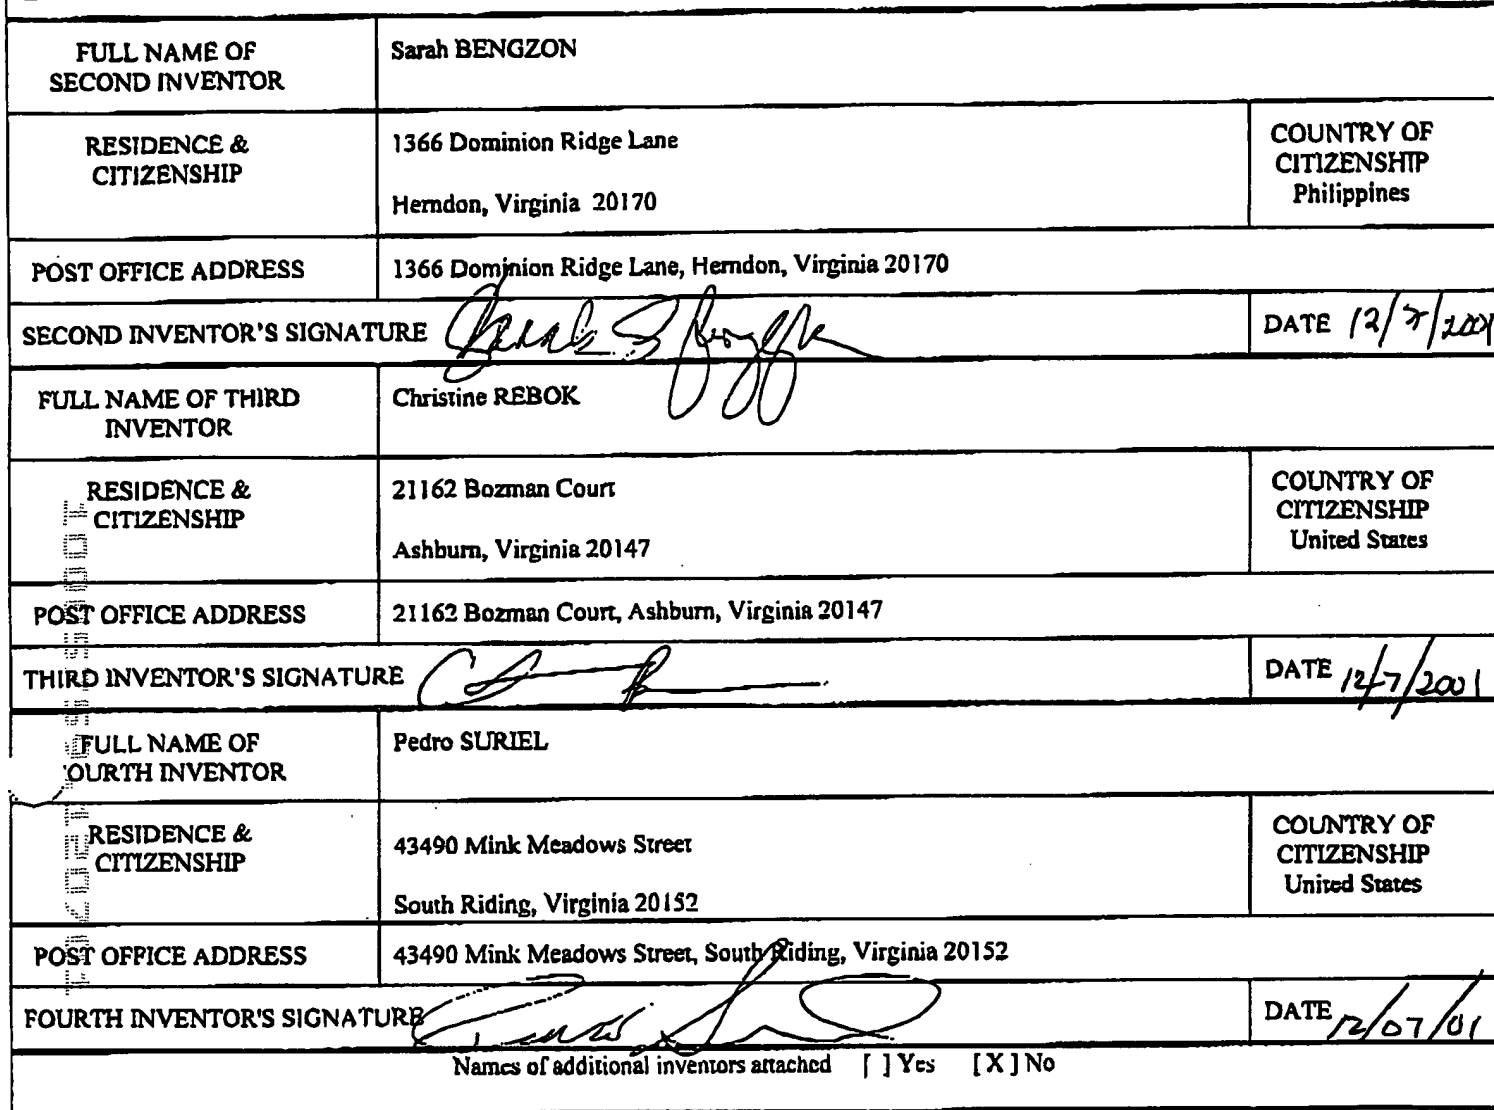 FULL NAME OF
SECOND INVENTOR
Sarah BENGZON
RESIDENCE &
CITIZENSHIP
1366 Dominion Ridge Lane
Herndon, Virginia 20170
COUNTRY OF
CITIZENSHIP
Philippines
POST OFFICE ADDRESS
1366 Dominion Ridge Lane, Herndon, Virginia 20170
SECOND INVENTOR'S SIGNATURE
DATE 12/7/2001
FULL NAME OF THIRD
INVENTOR
Christine REBOK
RESIDENCE &
CITIZENSHIP
21162 Bozman Court
Ashburn, Virginia 20147
COUNTRY OF
CITIZENSHIP
United States
POST OFFICE ADDRESS
21162 Bozman Court, Ashburn, Virginia 20147
THIRD INVENTOR'S SIGNATURE
DATE 12/7/2001
FULL NAME OF
OURTH INVENTOR
Pedro SURIEL
RESIDENCE &
CITIZENSHIP
43490 Mink Meadows Street
South Riding, Virginia 20152
COUNTRY OF
CITIZENSHIP
United States
POST OFFICE ADDRESS
43490 Mink Meadows Street, South Riding, Virginia 20152
FOURTH INVENTOR'S SIGNATURE
DATE 12/07/01
Names of additional inventors attached [ ] Yes [ X ] No